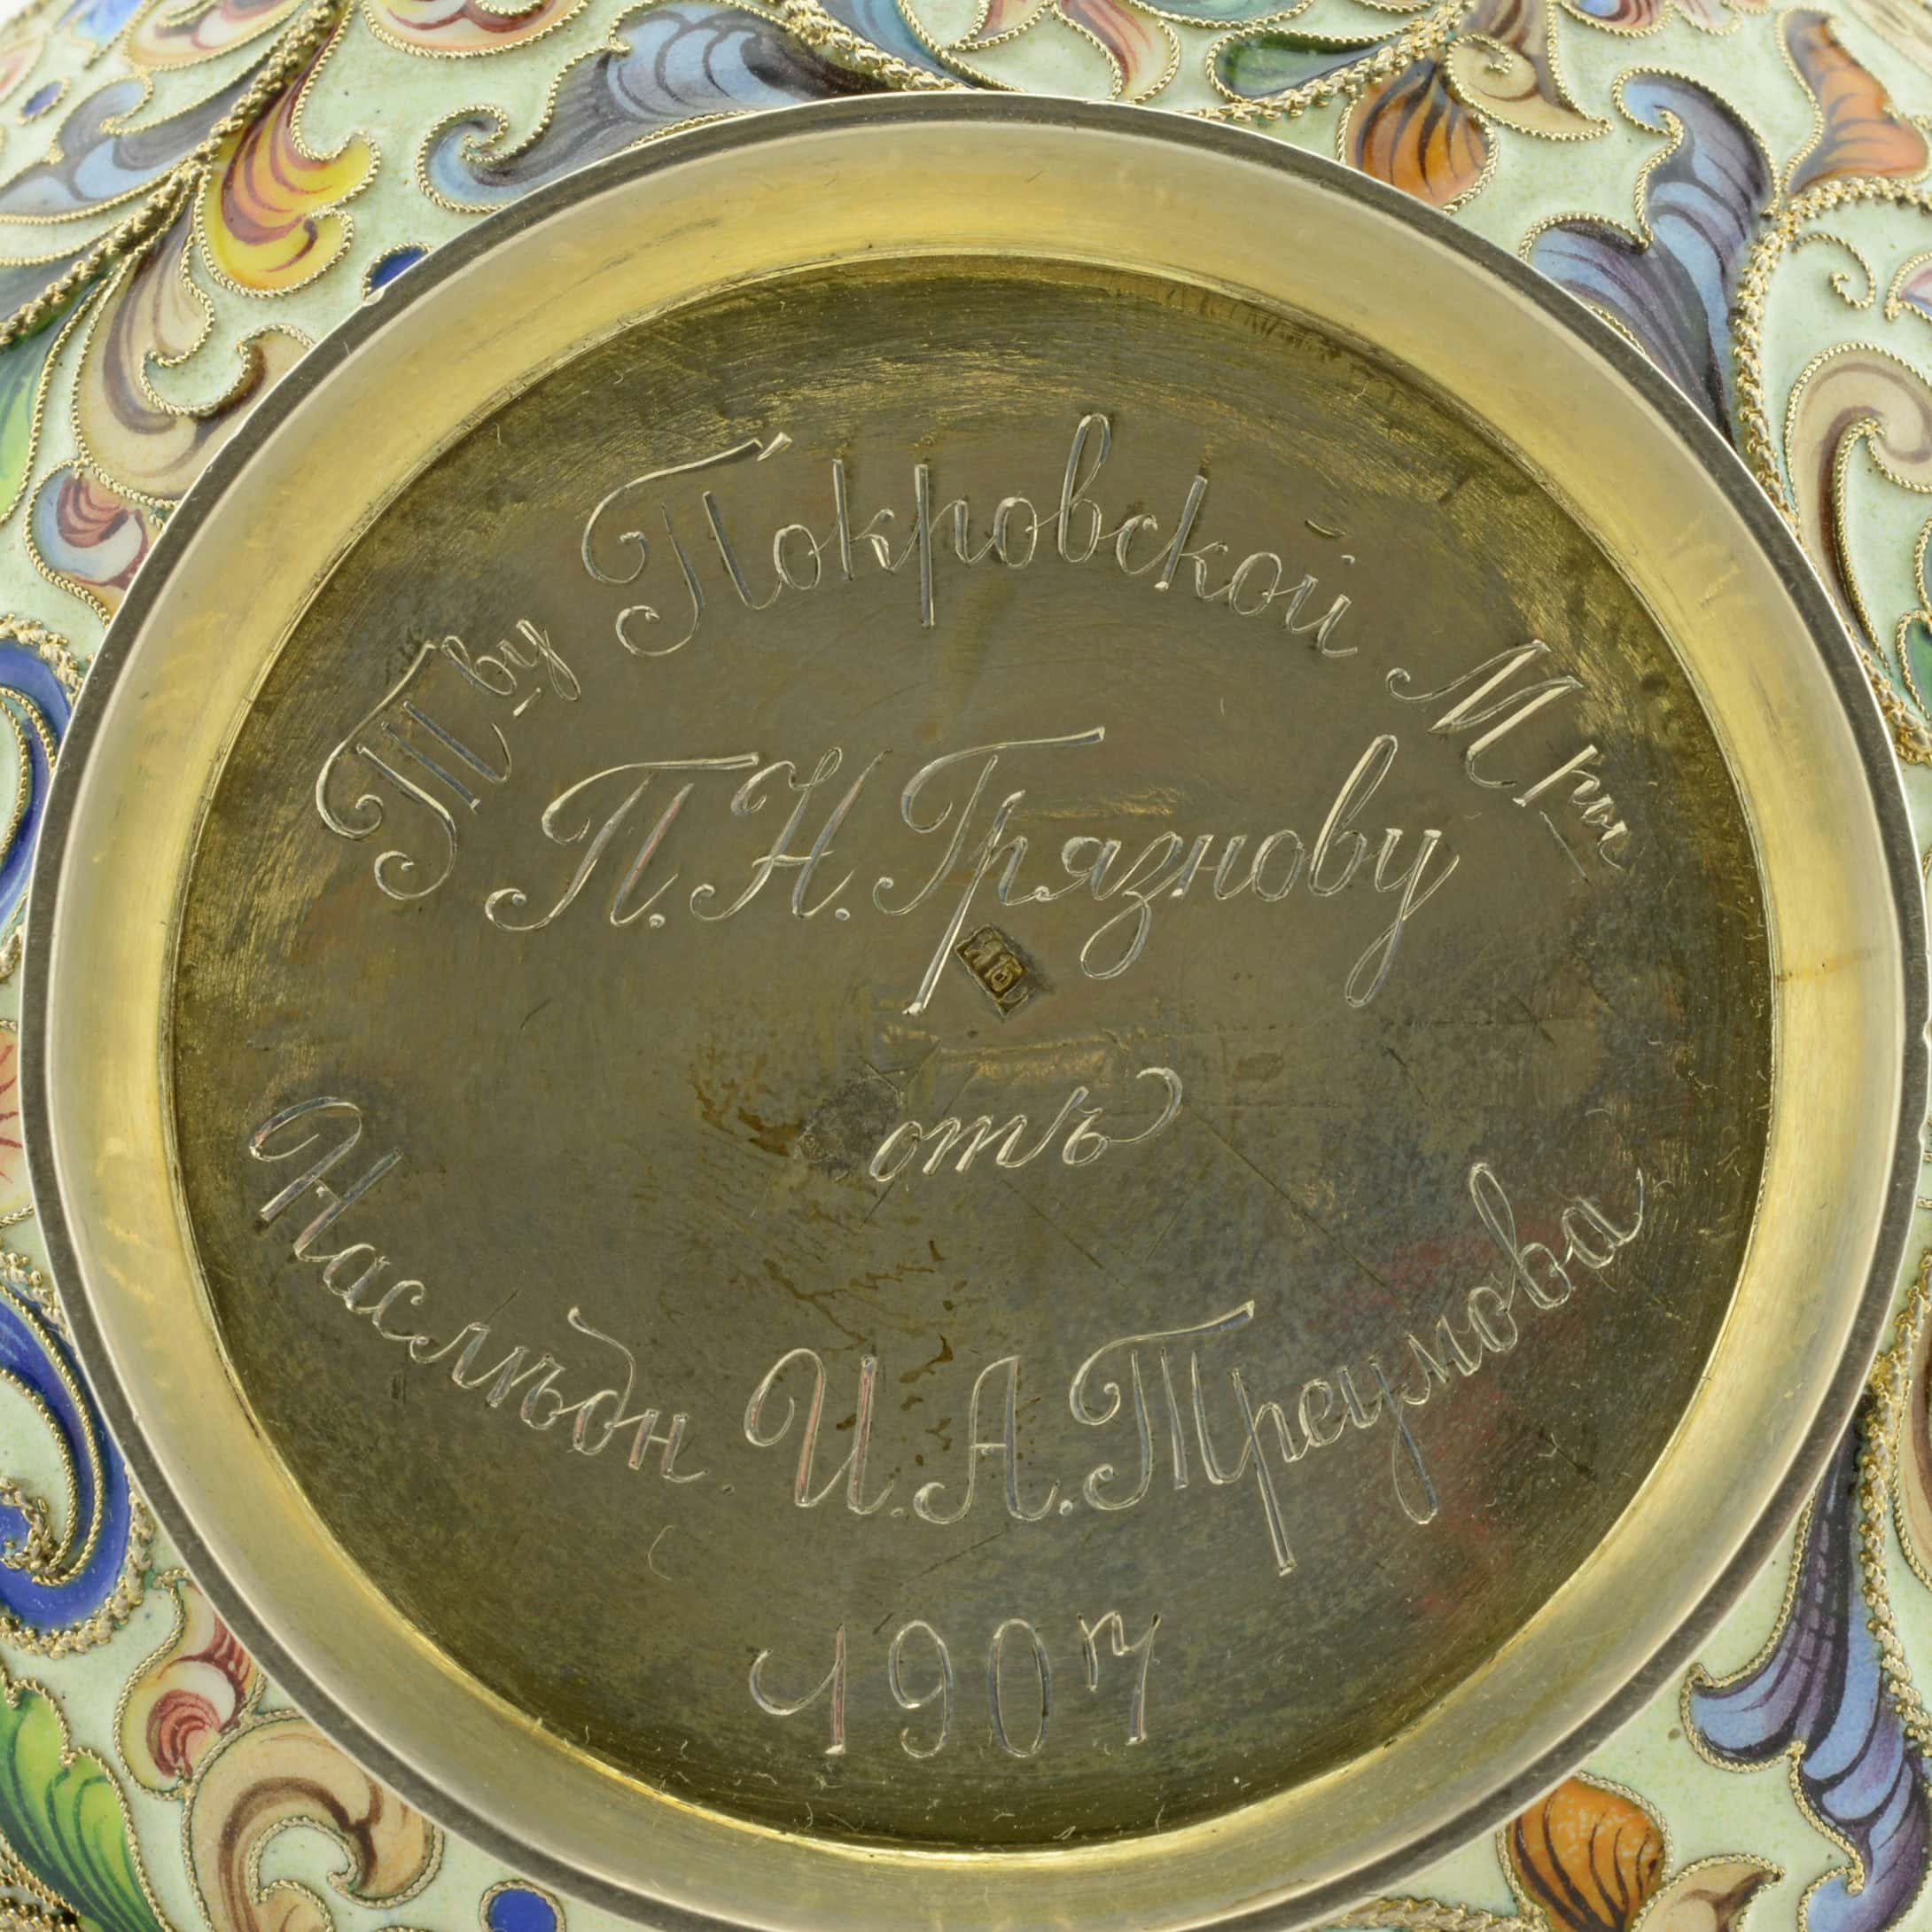 Тву Покровской Мры
П. Н. Грязнову
от
Наслѣдн. И. А. Треумова
1907